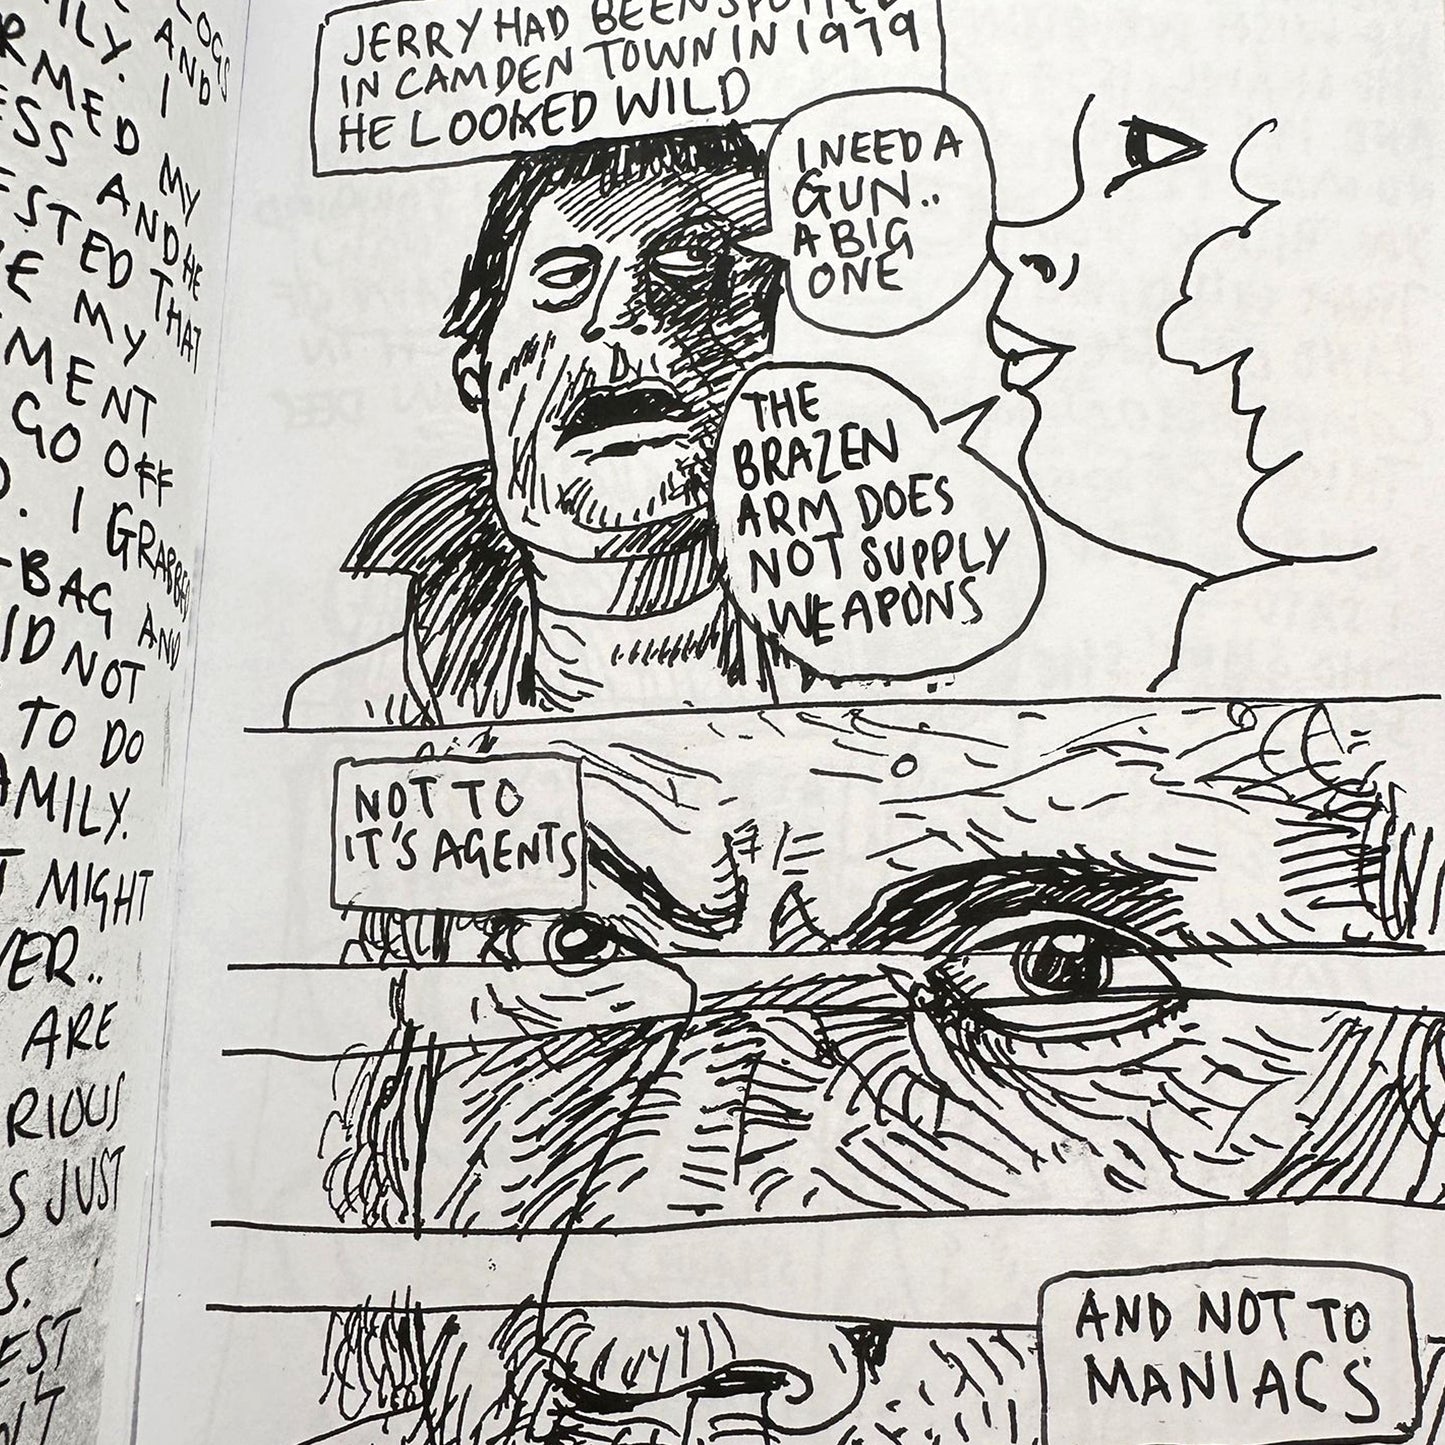 LOGS
ILY. AND
RMED I
ESS MY
AND HE
STED THAT
E MY
MENT
GO OFF
. I GRABBED
-BAG AND
ID NOT
TO DO
AMILY.
MIGHT
VER..
ARE
RIOUS
S JUST
S.
EST
JERRY HAD BEEN SPOTTED
IN CAMDEN TOWN IN 1979
HE LOOKED WILD
I NEED A
GUN..
A BIG
ONE
THE
BRAZEN
ARM DOES
NOT SUPPLY
WEAPONS
NOT TO
IT'S AGENTS
AND NOT TO
MANIACS